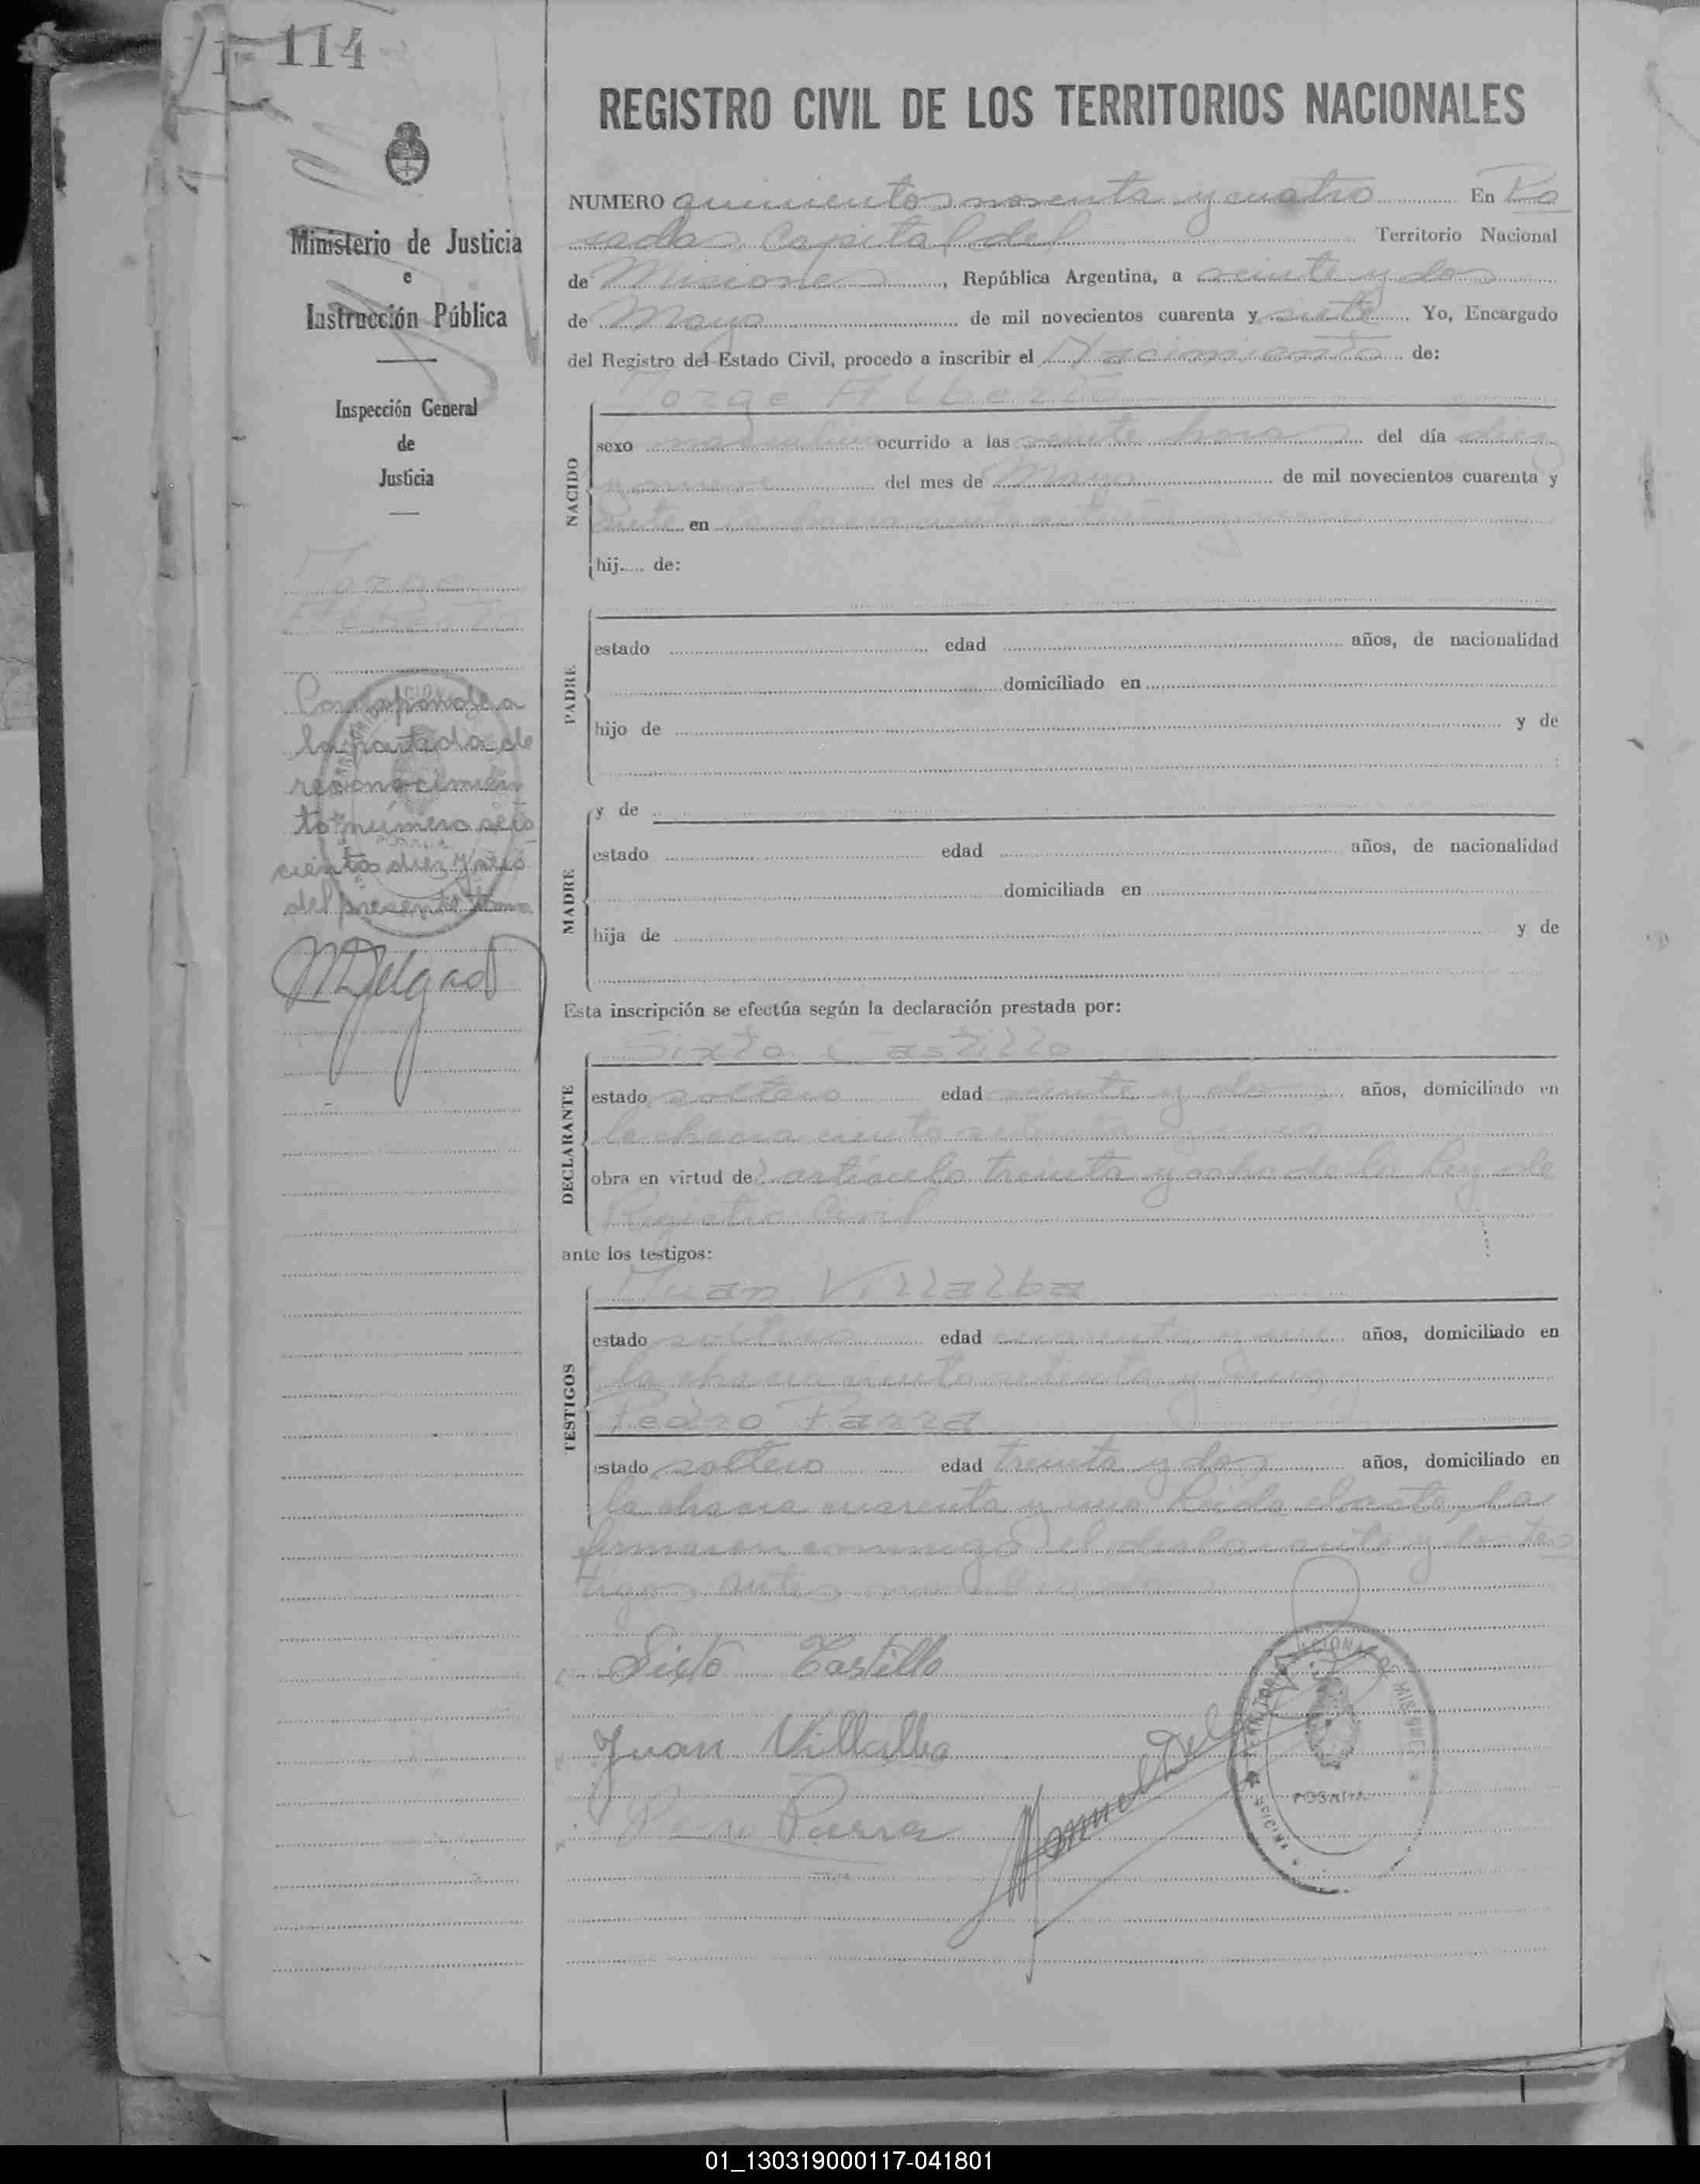 114
Ministerio de Justicia
e
Instrucción Pública
Inspección General
de
Justicia
Jorge
Alberto
Corresponde a
la partida de
reconocimien
to número seis
cientos diez y seis
del presente tomo
MDelgado
REGISTRO CIVIL DE LOS TERRITORIOS NACIONALES
NUMERO quinientos noventa y cuatro En Po
sadas Capital del Territorio Nacional
de Misiones, República Argentina, a veinte y dos
de Mayo de mil novecientos cuarenta y siete Yo, Encargado
del Registro del Estado Civil, procedo a inscribir el Nacimiento de:
Jorge Alberto
NACIDO
sexo masculino ocurrido a las veinte horas del día diez
y nueve del mes de Mayo de mil novecientos cuarenta y
siete en la chacra ciento
hij.... de:
PADRE
estado edad años, de nacionalidad
domiciliado en
hijo de y de
MADRE
y de
estado edad años, de nacionalidad
domiciliada en
hija de y de
Esta inscripción se efectúa según la declaración prestada por:
DECLARANTE
Sixto Castillo
estado soltero edad veinte y dos años, domiciliado en
la chacra ciento
obra en virtud del artículo treinta y ocho de la Ley de
Registro Civil
ante los testigos:
TESTIGOS
Juan Villalba
estado soltero edad años, domiciliado en
la chacra ciento setenta y
Pedro Parra
estado soltero edad treinta y dos años, domiciliado en
la chacra cuarenta y una Leida el acta, la
firmaron conmigo el declarante y los tes
tigos antes nombrados
Sixto Castillo
Juan Villalba
Pedro Parra
Manuel Del
TERRITORIO NACIONAL DE MISIONES
OFICINA
POSADAS
01_130319000117-041801